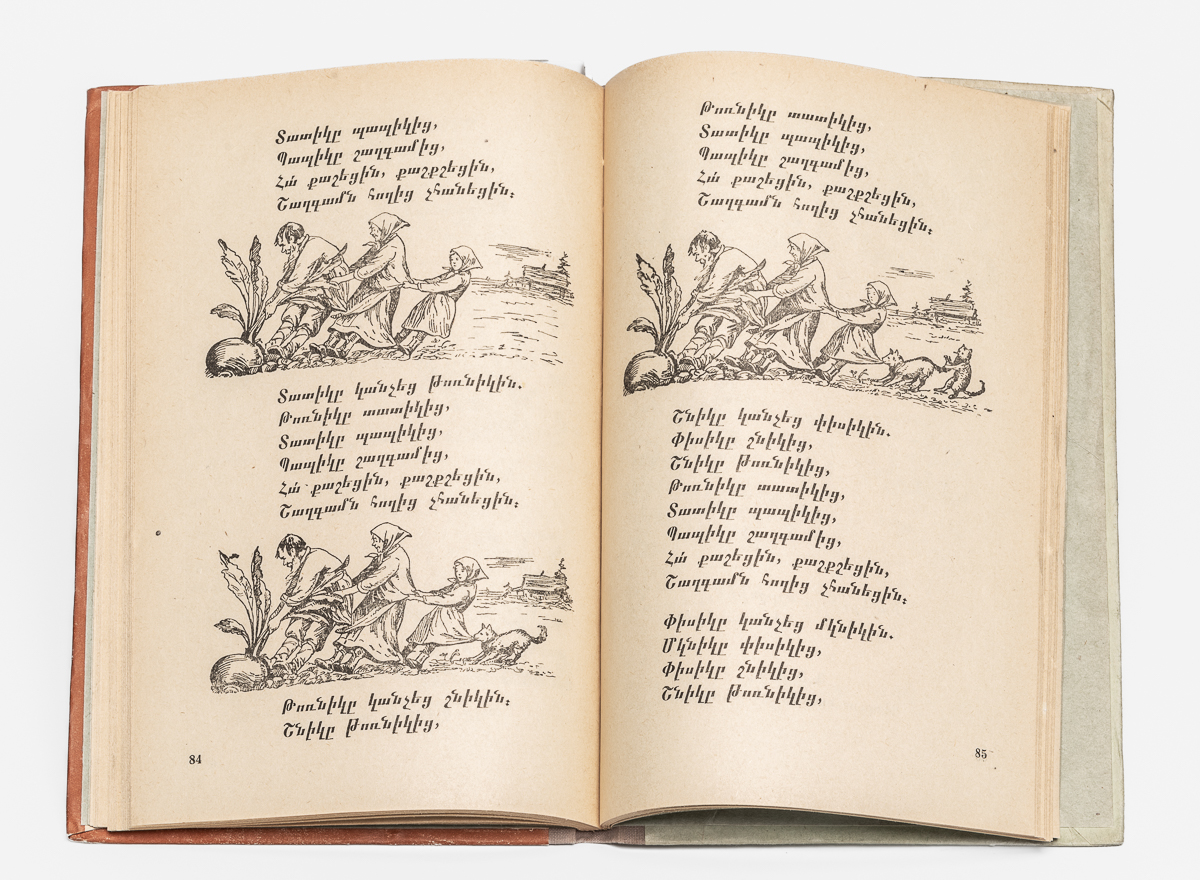 Տատիկը պապիկից,
Պապիկը շաղգամից,
Հա՜ քաշեցին, քաշքշեցին,
Շաղգամն հողից չհանեցին։
Տատիկը կանչեց թոռնիկին.
Թոռնիկը տատիկից,
Տատիկը պապիկից,
Պապիկը շաղգամից,
Հա՜ քաշեցին, քաշքշեցին,
Շաղգամն հողից չհանեցին։
Թոռնիկը կանչեց շնիկին։
Շնիկը թոռնիկից,
84
Թոռնիկը տատիկից,
Տատիկը պապիկից,
Պապիկը շաղգամից,
Հա՜ քաշեցին, քաշքշեցին,
Շաղգամն հողից չհանեցին։
Շնիկը կանչեց փիսիկին.
Փիսիկը շնիկից,
Շնիկը թոռնիկից,
Թոռնիկը տատիկից,
Տատիկը պապիկից,
Պապիկը շաղգամից,
Հա՜ քաշեցին, քաշքշեցին,
Շաղգամն հողից չհանեցին։
Փիսիկը կանչեց մկնիկին.
Մկնիկը փիսիկից,
Փիսիկը շնիկից,
Շնիկը թոռնիկից,
85